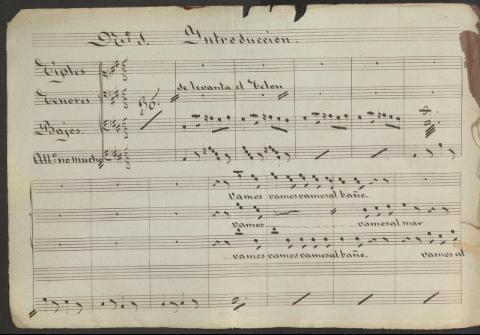 Nº 1. Introduccion.
Tiples
se levanta el Telon
Tenores
Bajos.
All.º no mucho
vamos vamos vamos al baño.
vamos vamos al mar
vamos vamos vamos al baño. vamos al